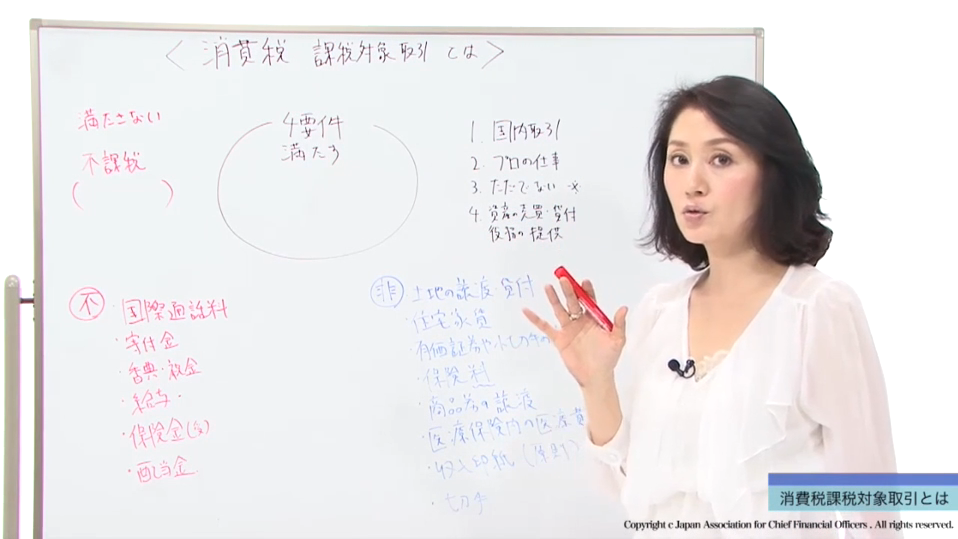 ＜ 消費税 課税対象取引 とは ＞
満たさない
不課税
(　　　)
4要件
満たす
1. 国内取引
2. プロの仕事
3. ただでない ※
4. 資産の売買・貸付
役務の提供
不
・国際通話料
・寄付金
・香典・祝金
・給与・
・保険金(受)
・配当金
非
土地の譲渡 貸付
・住宅家賃
・有価証券や
・保険料
・商品券の譲渡
・医療保険内の医療費
・収入印紙 (原則)
・切手
消費税課税対象取引とは
Copyright c Japan Association for Chief Financial Officers . All rights reserved.